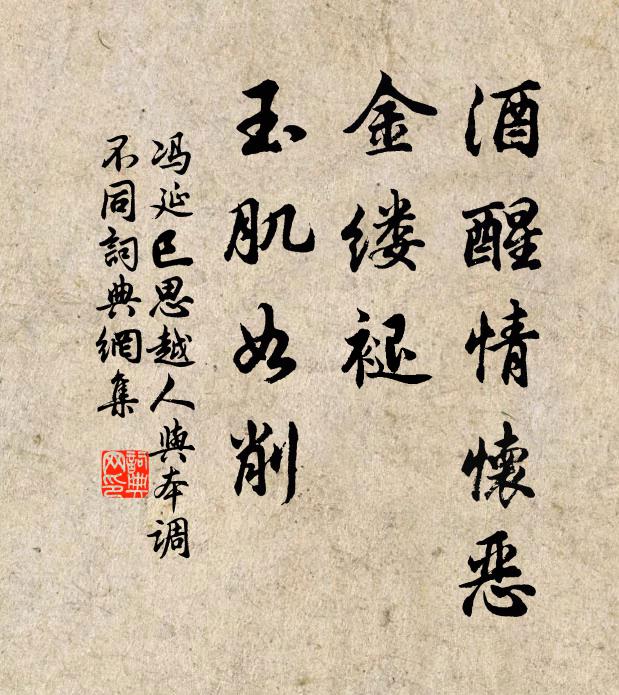 酒醒情懷恶
金缕褪
玉肌如削
冯延巳思越人與本调
不同詞典網集
詞典网印